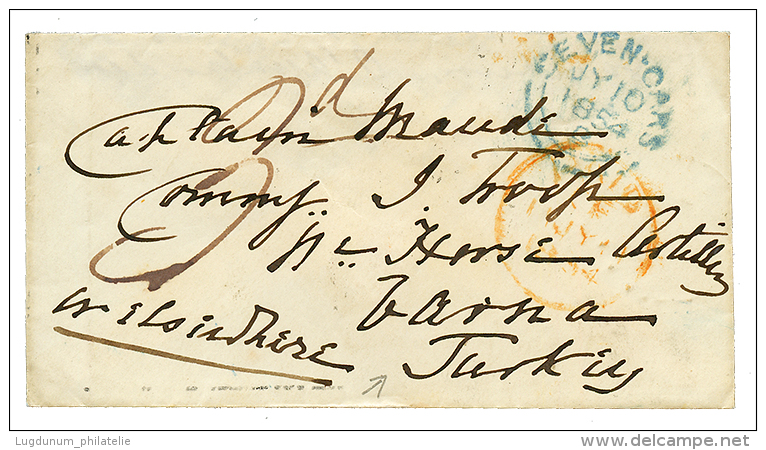 Captain Maude
Commg. I. Troop
Hr. Horse Artillery
Varna
or elsewhere
Turkey
JY 10
1854
Lugdunum_philatelie
delcampe.net